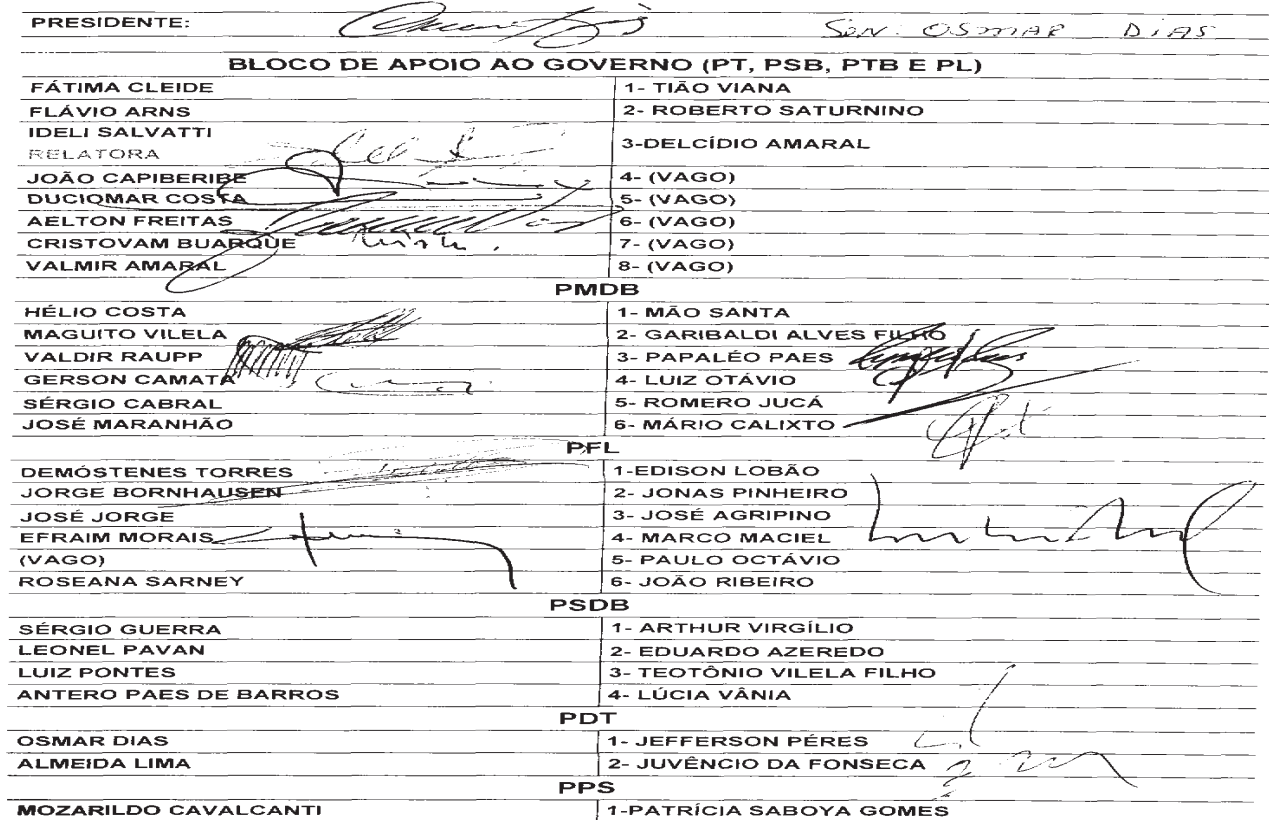 PRESIDENTE: SEN. OSMAR DIAS
BLOCO DE APOIO AO GOVERNO (PT, PSB, PTB E PL)
FÁTIMA CLEIDE 1- TIÃO VIANA
FLÁVIO ARNS 2- ROBERTO SATURNINO
IDELI SALVATTI
RELATORA 3-DELCÍDIO AMARAL
JOÃO CAPIBERIBE 4- (VAGO)
DUCIOMAR COSTA 5- (VAGO)
AELTON FREITAS 6- (VAGO)
CRISTOVAM BUARQUE 7- (VAGO)
VALMIR AMARAL 8- (VAGO)
PMDB
HÉLIO COSTA 1- MÃO SANTA
MAGUITO VILELA 2- GARIBALDI ALVES FILHO
VALDIR RAUPP 3- PAPALÉO PAES
GERSON CAMATA 4- LUIZ OTÁVIO
SÉRGIO CABRAL 5- ROMERO JUCÁ
JOSÉ MARANHÃO 6- MÁRIO CALIXTO
PFL
DEMÓSTENES TORRES 1-EDISON LOBÃO
JORGE BORNHAUSEN 2- JONAS PINHEIRO
JOSÉ JORGE 3- JOSÉ AGRIPINO
EFRAIM MORAIS 4- MARCO MACIEL
(VAGO) 5- PAULO OCTÁVIO
ROSEANA SARNEY 6- JOÃO RIBEIRO
PSDB
SÉRGIO GUERRA 1- ARTHUR VIRGÍLIO
LEONEL PAVAN 2- EDUARDO AZEREDO
LUIZ PONTES 3- TEOTÔNIO VILELA FILHO
ANTERO PAES DE BARROS 4- LÚCIA VÂNIA
PDT
OSMAR DIAS 1- JEFFERSON PÉRES
ALMEIDA LIMA 2- JUVÊNCIO DA FONSECA
PPS
MOZARILDO CAVALCANTI 1-PATRÍCIA SABOYA GOMES